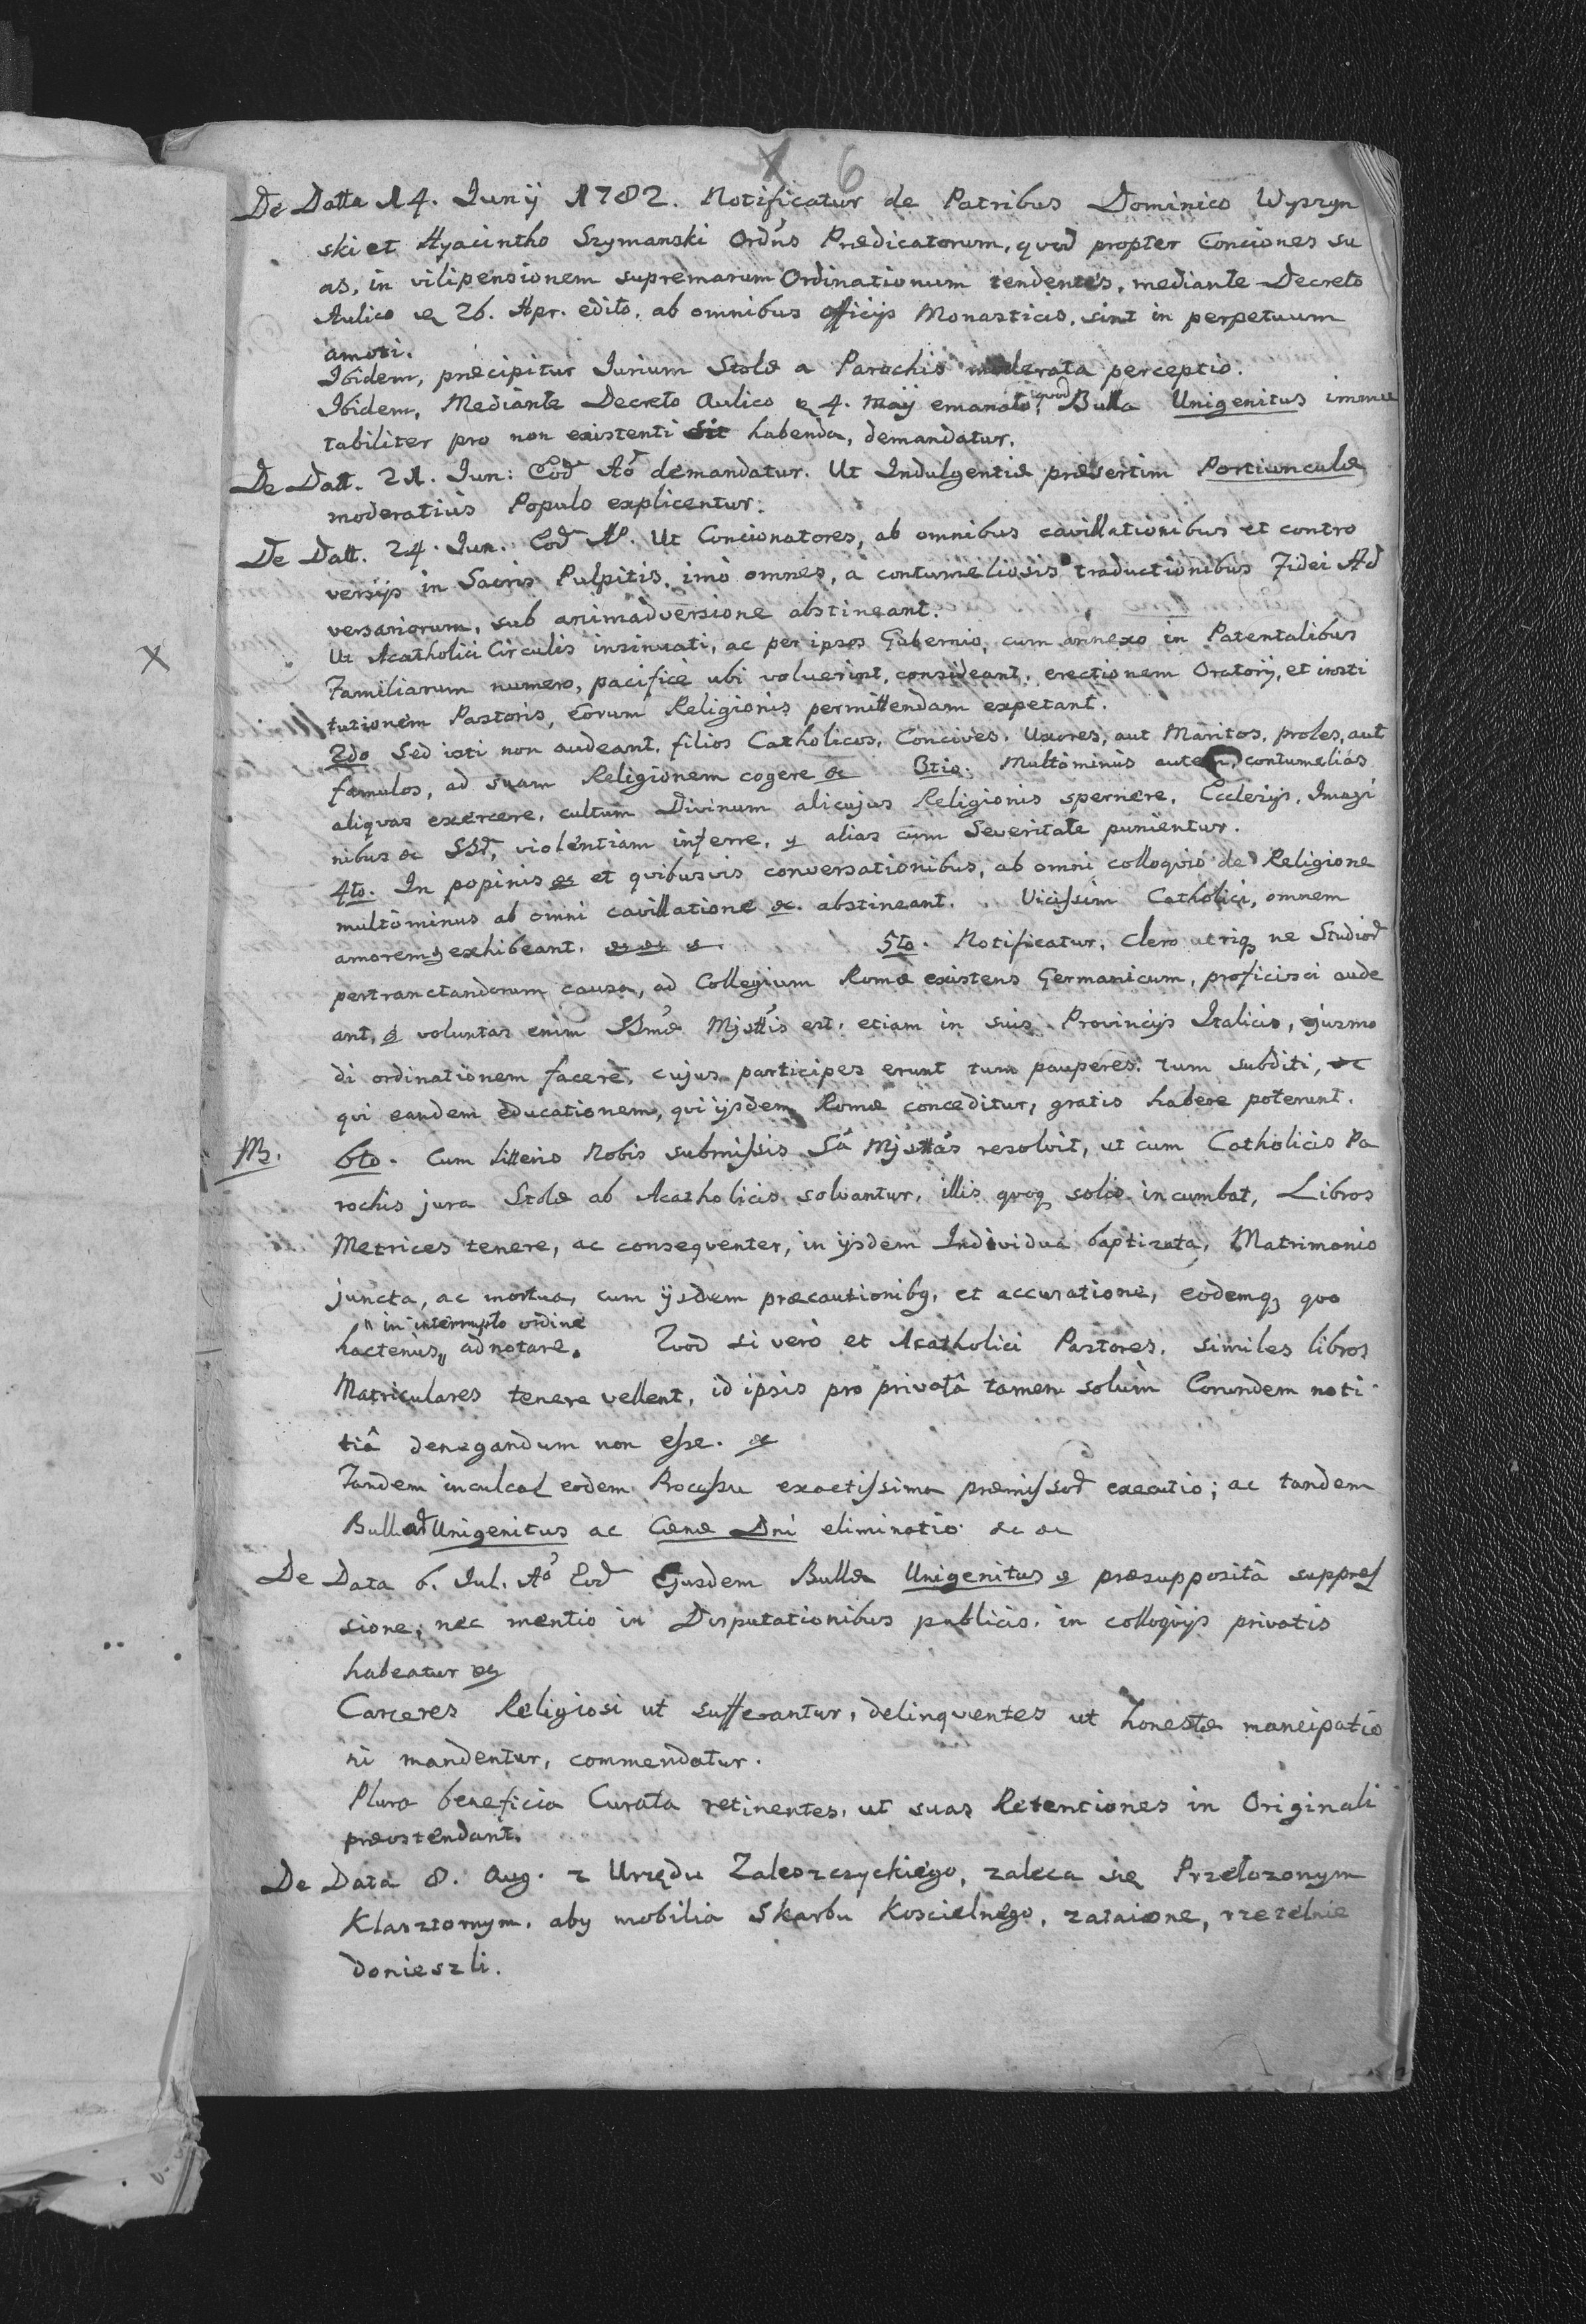 X 6
De Datta 14. Junij 1782. Notificatur de Patribus Dominico Wyszyn
ski et Hyacintho Szymanski Ordnis Prædicatorum, quod propter Conciones su
as, in vilipensionem supremarum Ordinationum tendentes, mediante Decreto
Aulico 26. Apr. edito, ab omnibus officijs Monasticis, sint in perpetuum
amoti.
Ibidem, præcipitur Jurium Stolæ a Parochis moderata perceptio.
Ibidem, Mediante Decreto Aulico 4. Maij emanato, quod Bulla Unigenitus immu
tabiliter pro non existenti sit habenda, demandatur.
De Datt. 21. Jun: Eod Aō demandatur. Ut Indulgentiæ præsertim Portiunculæ
moderatiùs Populo explicentur.
De Datt. 24. Jun. Eod Aō. Ut Concionatores, ab omnibus cavillationibus et contro
versijs in Sacris Pulpitis, imò omnes, à contumeliosis traductionibus Fidei Ad
versariorum, sub animadversione abstineant.
X
Ut Acatholici Circulis insinuati, ac per ipsos Gubernio, cum annexo in Patentalibus
Familiarum numero, pacificè ubi voluerint, consideant, erectionem Oratorij, et insti
tutionem Pastoris, Eorum Religionis permittendam expetant.
2do Sed isti non audeant, filios Catholicos, Concives, Uxores, aut Maritos, proles, aut
famulos, ad suam Religionem cogere &c 3tio. Multominùs autem, contumelias
aliquas exercere, cultum Divinum alicujus Religionis spernere, Ecclesijs, Imagi
nibus &c SSd, violentiam inferre, alias cum Severitate punientur.
4to. In popinis &c et quibusvis conversationibus, ab omni colloquio de Religione
multominus ab omni cavillatione &c. abstineant. Vicissim Catholici, omnem
amorem exhibeant. 5to. Notificatur, Clero utriq; ne Studiod
pertranctandorum causa, ad Collegium Romæ existens Germanicum, proficisci aude
ant, voluntas enim SSmæ Mjsttis est, etiam in suis Provincijs Italicis, ejusmo
di ordinationem facere, cujus participes erunt tum pauperes, tum subditi, &c
qui eandem educationem, qui ijsdem Romæ conceditur, gratis habere poterunt.
NB. 6to. Cum litteris Nobis submissis Sa Mjsttás resolvit, ut cum Catholicis Pa
rochis jura Stolæ ab Acatholicis solvantur, illis quoq; solis incumbat, Libros
Metrices tenere, ac conseqventer, in ijsdem Individua baptizata, Matrimonio
juncta, ac mortua, cum ijsdem præcautionibq, et accuratione, eodemq; quo
" in interrupto ordine
hactenùs " adnotare. Quod si verò et Acatholici Pastores, similes libros
Matriculares tenere vellent, id ipsis pro privatâ tamen solùm Eorundem noti
tiâ denegandum non esse. &c
Tandem inculcat eodem Processu exactissima præmissod executio; ac tandem
Bullad Unigenitus ac Cænæ Dni eliminatio &c &c
De Data 6. Jul. Aō Eod Ejusdem Bullæ Unigenitus præsuppositâ suppres
sione, nec mentio in Disputationibus publicis, in colloqvijs privatis
habeatur &c
Carceres Religiosi ut sufferantur, delinqventes ut honestæ mancipatio
ni mandentur, commendatur.
Plura beneficia Curata retinentes, ut suas Retentiones in Originali
præostendant.
De Data 8. Aug. z Urzędu Zaleszczyckiego, zaleca się Przełozonym
Klasztornym, aby mobilia Skarbu Koscielnego, zataione, rzetelnie
donieszli.